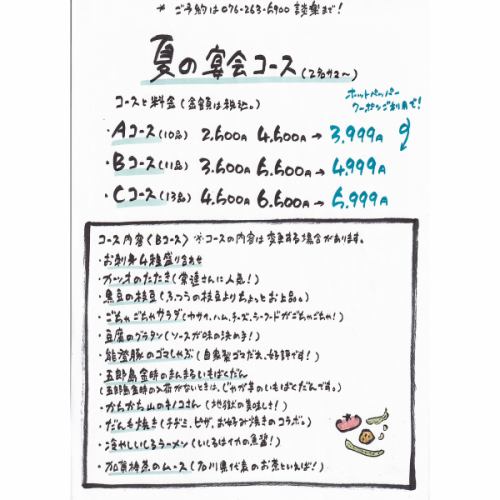 * ご予約は076-263-5900 談楽まで!
夏の宴会コース (2名サマ〜)
コースと料金 (金額は税込。)
ホットペッパー
クーポンご利用で!
・Aコース (10品) 2.500円 4.500円→ 3.999円
・Bコース (11品) 3.500円 5.500円→ 4.999円
・Cコース (13品) 4.500円 6.500円→ 5.999円
コース内容〈Bコース〉 ※コースの内容は変更する場合があります。
・お刺身4種盛り合わせ
・カツオのたたき (常連さんに人気!)
・黒豆の枝豆 (ふつうの枝豆よりちょっとお上品。)
・ごちゃごちゃサラダ (ヤサイ、ハム、チーズ、シーフードがごちゃごちゃ!)
・豆腐のグラタン (ソースが味の決め手!)
・能登豚のゴマしゃぶ (自家製ゴマだれ、好評です!)
・五郎島金時のまんまるいもばくだん
(五郎島金時の入荷がないときは、じゃが芋のいもばくだんです。)
・かちかち山のキノコさん (地獄の美味しさ!)
・だんも焼き (チヂミ、ピザ、お好み焼きのコラボ。)
・冷やしいしるラーメン (いしるはイカの魚醤!)
・加賀棒茶のムース (石川県代表のお茶といえば!)